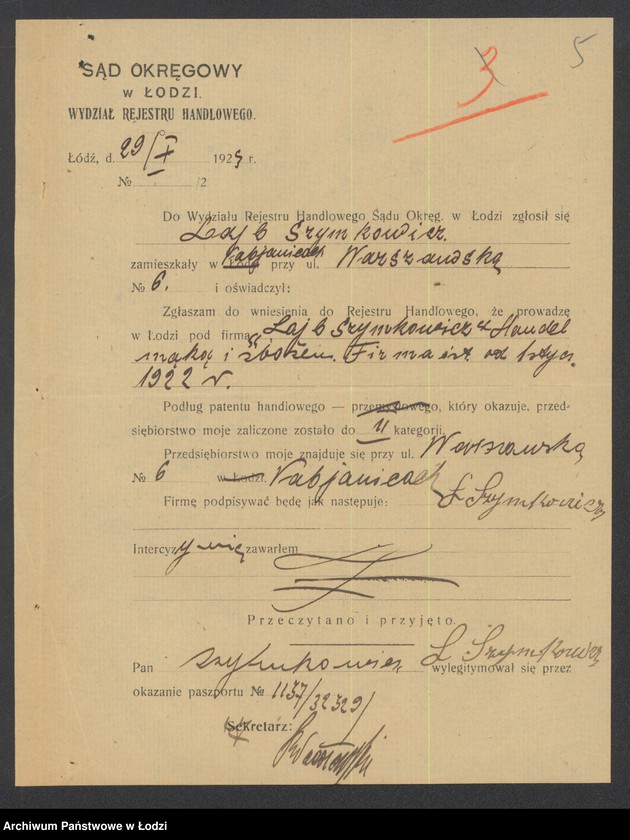 3 5
SĄD OKRĘGOWY
W ŁODZI.
WYDZIAŁ REJESTRU HANDLOWEGO.
Łódź, d. 29/I 1925 r.
№ /2
Do Wydziału Rejestru Handlowego Sądu Okręg. w Łodzi zgłosił się
Lajb Szymkowicz.
zamieszkały w Łodzi Pabjanicach przy ul. Warszawską
№ 6. i oświadczył:
Zgłaszam do wniesienia do Rejestru Handlowego, że prowadzę
w Łodzi pod firmą „Lajb Szymkowicz" Handel
mąką i zbożem. Firma istn. od 1 stycz.
1922 r.
Podług patentu handlowego — przemysłowego, który okazuje, przed-
siębiorstwo moje zaliczone zostało do II kategorji.
Przedsiębiorstwo moje znajduje się przy ul. Warszawską
№ 6 w Łodzi. Pabjanicach
Firmę podpisywać będę jak następuje: L Szymkowicz
Intercyzy nie zawarłem
Przeczytano i przyjęto.
Pan Szymkowicz L Szymkowicz wylegitymował się przez
okazanie paszportu № 1137/32329/
Sekretarz: